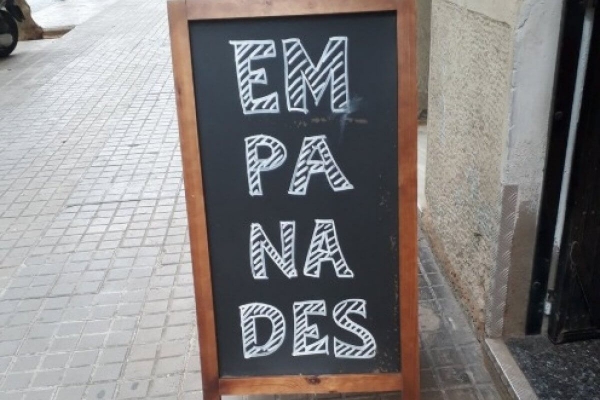 EM
PA
NA
DES